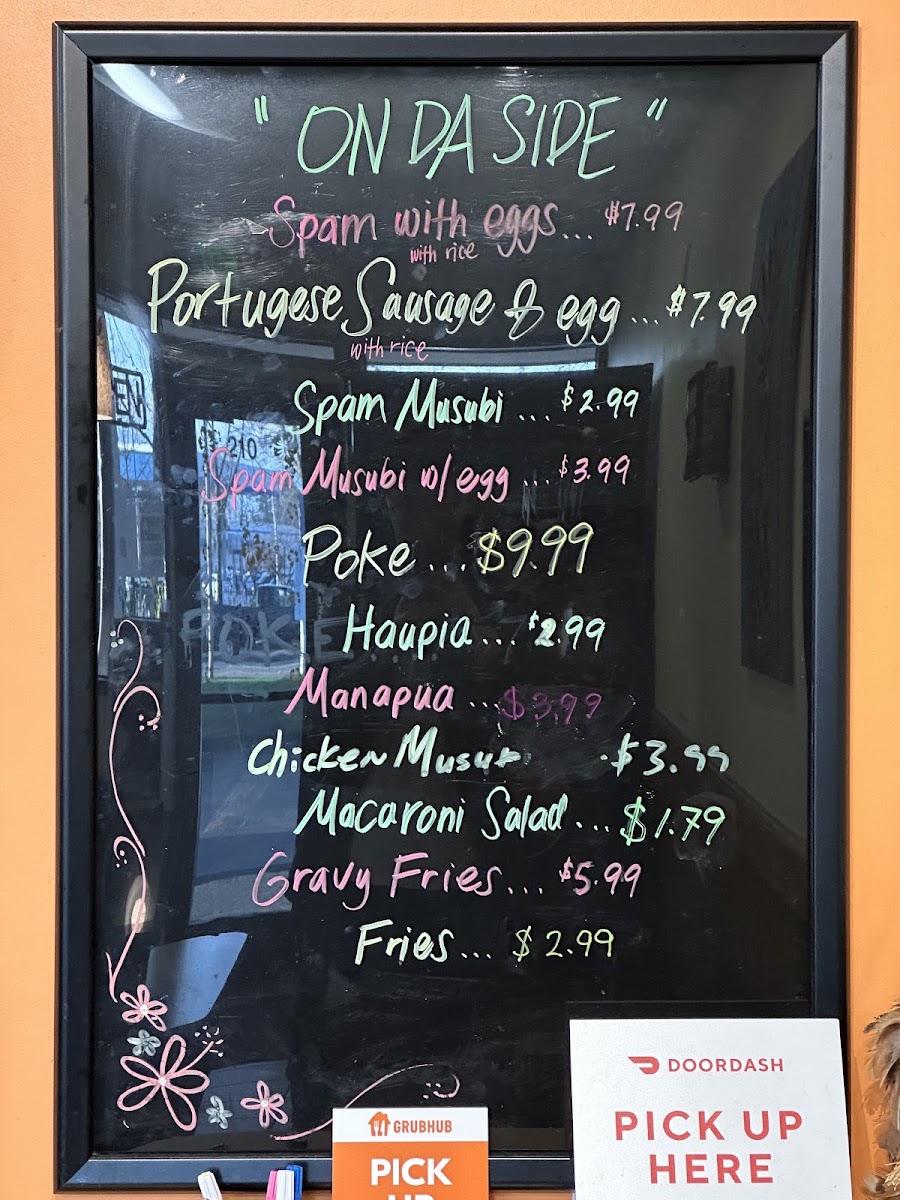 " ON DA SIDE "
Spam with eggs... $7.99
with rice
Portugese Sausage & egg ... $7.99
with rice
Spam Musubi ... $2.99
Spam Musubi w/ egg ... $3.99
Poke ... $9.99
Haupia ... $2.99
Manapua ... $3.99
Chicken $3.99
Macaroni Salad ... $1.79
Gravy Fries... $5.99
Fries... $2.99
210
POKE
DOORDASH
PICK UP
HERE
GRUBHUB
PICK
UP